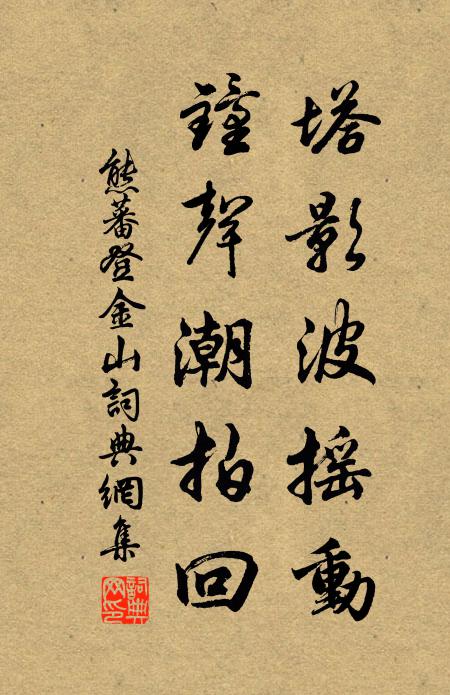 塔影波摇動
鐘聲潮拍回
熊蕃登金山詞典網集
詞典网印